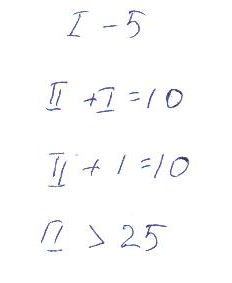 I - 5
II + I = 10
II + 1 = 10
II > 25